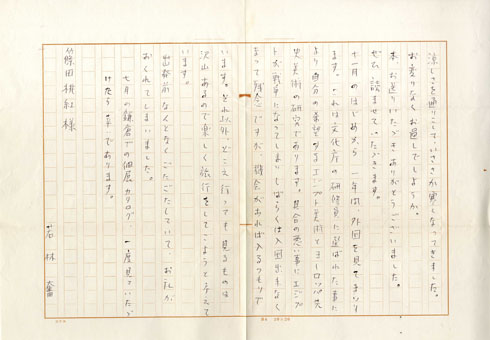 涼しさを通りこしていささか寒くなってきました。
お変りなくお過しでしょうか。
本、お送りいただきありがとうございました。
ぜひ読ませていただきます。
十一月のはじめから一年間外国を見てまいり
ます。これは文化庁の研修員に選ばれた事に
より自分の希望するエジプト美術とヨーロッパ先
史美術の研究であります。具合の悪い事にエジプ
ト大戦争になってしまいしばらくは入国出来なく
なって残念ですが、機会があれば入るつもりで
います。それ以外どこえ行っても見るものは
沢山あるので楽しく旅行をしてこようと考えて
います。
出発前なんとなくごたごたしていて、お礼が
おくれてしまいました。
七月の鎌倉での個展カタログ、一度見ていただ
けたら幸であります。
篠田桃紅様
若林 奮